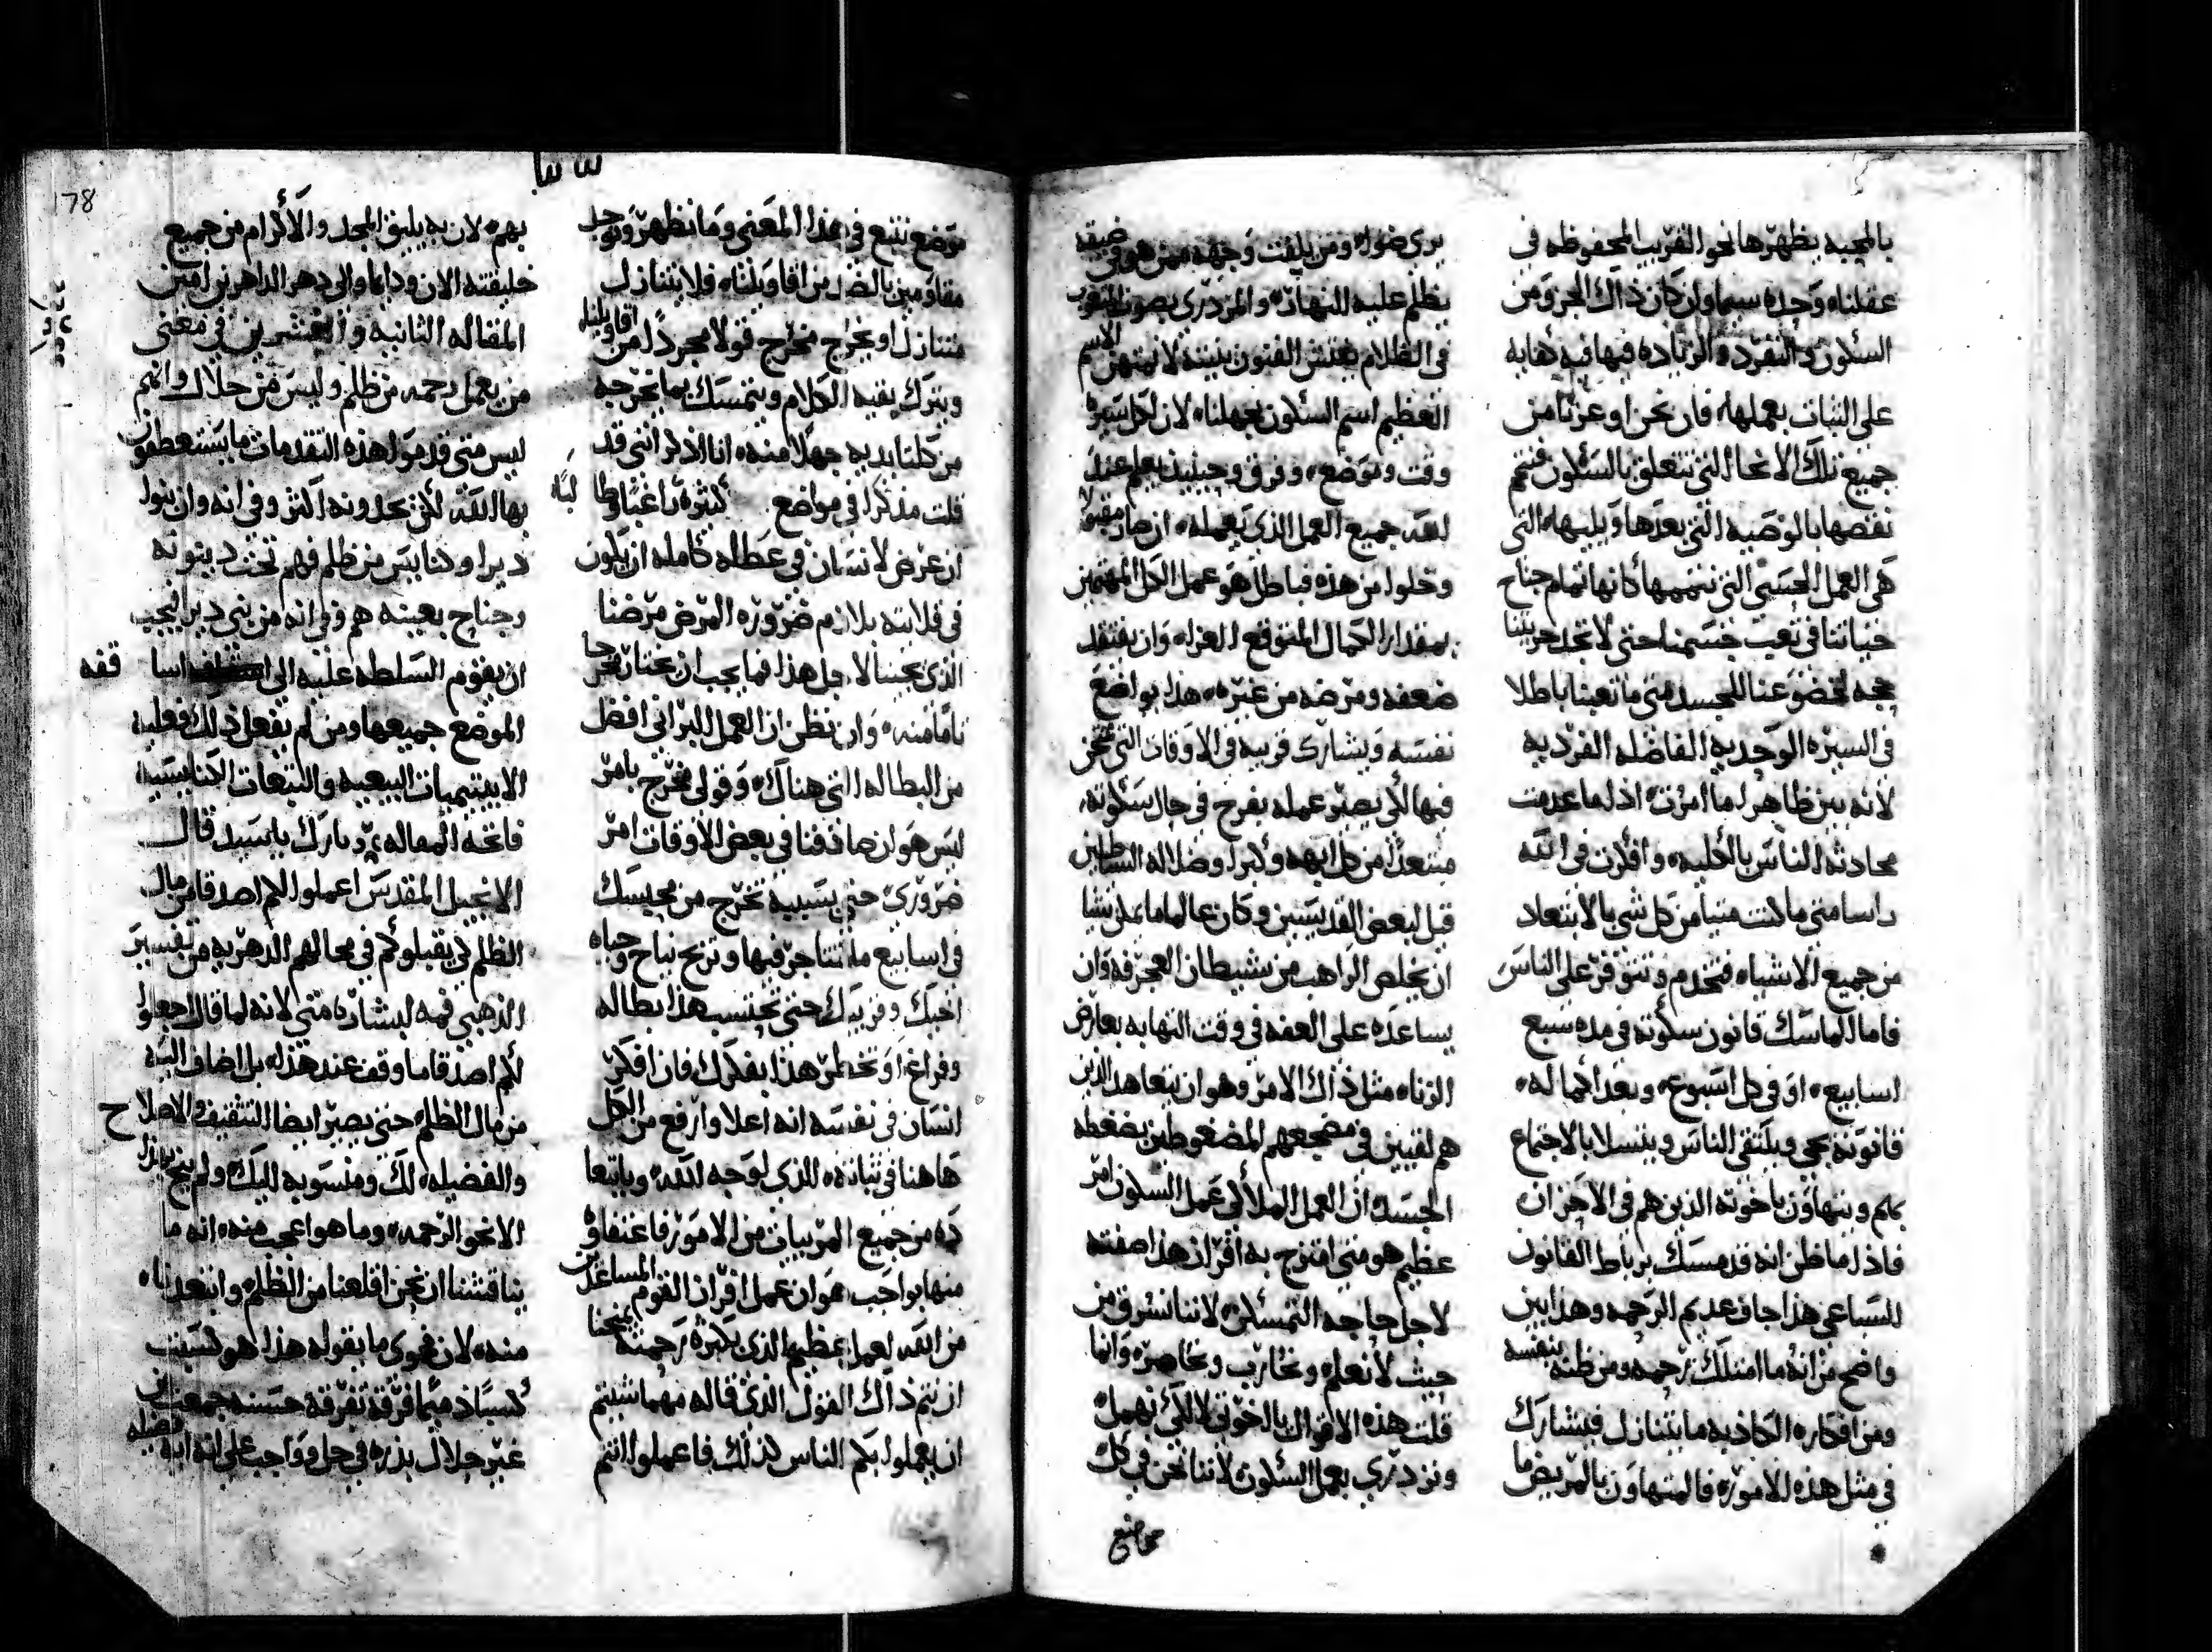 بالمحبه يظهرها نحو القريب المحفوظه في
عقلناه وحده سيما وان كان ذاك الجزو من
السكون والتفرد والزياده فيها فيه كفايه
على الثبات بعملها فان نحن اوعزنا من
جميع تلك الانحا التي تتعلق بالسكون فنتم
نقصها بالوصيه التي بعدها ويليها التي
هي العمل الحسي التي نتممها كانها تمام جناح
حياتنا في تعب جسمنا حتى لا تجد حريتنا
حجه لخضوعنا للجسد متى ما تعبنا باطلا
في السيره الوحديه الفاضله الفرديه
لانه بين ظاهر لما امرت اذ لما عدمت
محادثة الناس بالكليه وافكرت في الله
داسا متى ما كنت ميتا من كل شي بالابتعاد
من جميع الاشياء فتخدم وتتوفر على الناس
فاما الماسك قانون سكوته في مده سبع
اسابيع او في كل اسبوع وبعد اكماله
قانونه يجي ويلتقي الناس ويتسلا بالاجتماع
بهم ويتهاون باخوته الذين هم في الاحزان
فاذ لما ظن انه قد مسك برباط القانون
السباعي هذا جاف عديم الرحمه وهذا بين
واضح من انه ما امتلك رحمه ومن ظنه بنفسه
ومن افكاره الكاذبه ما يتنازل فيشارك
في مثل هذه الامور فالمتهاون بالمريض ما
يرى ضواه ومن يلفت وجهه ممن هو في ضيقه
يظلم عليه النهار والمزدري بصوت المتعوب
في الظلام يفتش الفنون بنيته لا نمتهن الاسم
العظيم اسم السكون بجهلنا لان لكل سيره
وقت وموضع وفرق وحينيذ يعلم عند
الله جميع العمل الذي يعمله ان صار مقبولا
وخلوا من هذه فباطل هو عمل الكل المهتمين
بمقدار الكمال المتوقع العزاء وان يفتقد
ضعفه ومرضه من غيره هذا يواضع
نفسه ويشارك قريبه في الاوقات التي يحزن
فيها لكي يصير عمله بفرح في حال سكوته
مبتعدا من كل ابهه وكبرا وضلاله الشياطين
قيل لبعض القديسين وكان عالما ما يمكن شيا
ان يخلص الراهب من شيطان العجرفه وان
يساعده على العفه في وقت التهابه بعارض
الزناه مثل ذاك الامر وهو ان يتعاهد الذين
هم لقيين في مضجعهم المضغوطين بضغطه
الجسد ان العمل الملاكي عمل السكون امر
عظيم هو متى امتزج به افران هذا صفته
لاجل حاجه التمسكن لاننا نسرق من
حيث لا نعلم ونحارب ونحاصر وانما
قلت هذه الاقوال يا اخوتي لا لكي نهمل
ونزدري بعمل السكون لاننا نحن في كل
موضع
موضع نتبع في هذا المعنى وما نظهر ونوجد
مقاومين بالضد من اقاويلنا فلا يتنازل
متنازل او يخرج مخرج قولا مجردا من اقاويلنا
ويترك بقيه الكلام ويتمسك بما يخرجه
من كلنا بديه جهلا منه انا اذكر انني قد
قلت مذكرا في مواضع كثيره راغبا وطالبا
ان عرض لانسان في عطاله كامله ان يكون
في قلايته بلازم ضروره المرض مرضنا
الذي يجينا لاجل هذا فما يجب ان نختار مخرجا
تاما منه وان نظن ان العمل البراني افضل
من البطاله التي هناك وقولي مخرج بامر
ليس هو ان صادفنا في بعض الاوقات امر
ضروري حتى بسببه تخرج من محبسك
في اسابيع ما تتاجر فيها وتربح نياح وحياه
اخيك وقريبك حتى تحتسب هذا بطاله
وفراغ او تخطر هذا بفكرك فان افكر
انسان في نفسه انه اعلا وارفع من الكل
هاهنا في ثباته الذي لوجه الله وبابتعا
ده من جميع المربيات من الامور فاعتفاؤ
منها بواجب هو ان عمل افران القوم المساعدين
من الله لعمل عظيم الذي بكثرة رحمته يمنحنا
ان نتم ذاك القول الذي قاله مهما شيتم
ان يعملوا بكم الناس كذلك فاعملوا انتم
178
بهم لان به يليق المجد والاكرام من جميع
خليقته الان ودايما والى دهر الداهرين امين
المقاله الثانيه والعشرين في معنى
من يعمل رحمه من ظلم وليس من حلال وانهم
ليس متى قدموا هذه التقدمات ما يستعطفون
بها الله لكن يحدونه اكثر وفي انه وان بنوا
ديرا وكنايس من ظلم فهم تحت دينونه
وجناح بعينه هم وفي انه من بنى دير افيجب
ان يقوم السلطه عليه الى اسا قفه
الموضع جميعها ومن لم يفعل ذلك فعليه
الابيتيميات البيعيه والتبعات الكنايسيه
فاتحة المقاله بارك يا سيد قال
الانجيل المقدس اعملوا لكم اصدقا من مال
الظلم لكي يقبلوكم في محالهم الدهريه من تفسير
الذهبي فمه لبشارة متى لانه لما قال اجعلوا
لكم اصدقا ما وقف عند هذا بل اضاف اليه
من مال الظلم حتى يصير ايضا التثقيف والاصلاح
والفضيله لك ومنسوبه اليك ولم ينح بهذا
الا نحو الرحمه وما هو اعجب منه انه ما
يناقشنا ان نحن اقلعنا من الظلم وابتعدناه
منه لان فحوى ما يقوله هذا هو كسبت
كسبا دميما فرقه تفرقه حسنه جمعت من
غير حلال بذره في حل وواجب على انه اية فضيله